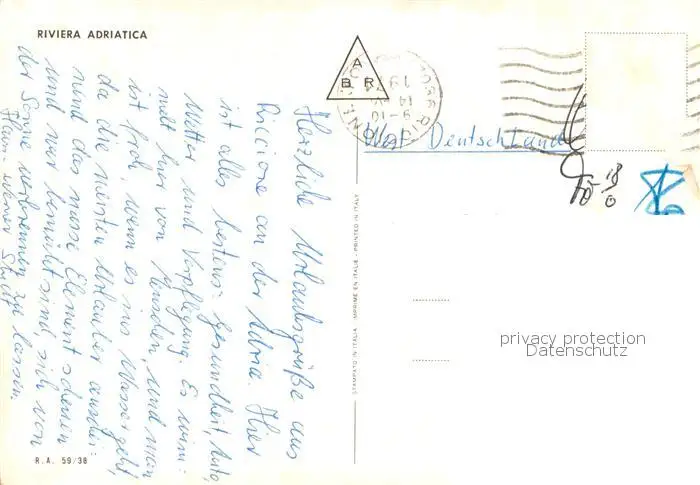 RIVIERA ADRIATICA
Herzliche Urlaubsgrüße aus
Riccione an der Adria. Hier
ist alles bestens: gesundheit, Auto,
Wetter und Verpflegung. Es wim-
melt hier von Menschen, und man
ist froh, wenn es ins Wasser geht,
da die meisten Urlauber
und das nasse Element scheuen
und nur bemüht sind, sich von
der Sonne verbrennen zu lassen.
R. A. 59/38
A
B R
West Deutschland
STAMPATO IN ITALIA - IMPRIMÉ EN ITALIE - PRINTED IN ITALY
privacy protection
Datenschutz